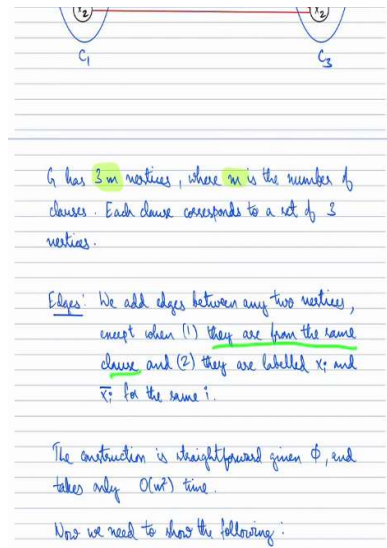 x₂ x₂
C₁ C₃
G has 3m vertices, where m is the number of
clauses. Each clause corresponds to a set of 3
vertices.
Edges: We add edges between any two vertices,
except when (1) they are from the same
clause and (2) they are labelled xᵢ and
x̄ᵢ for the same i.
The construction is straightforward given Φ, and
takes only O(m²) time.
Now we need to show the following: